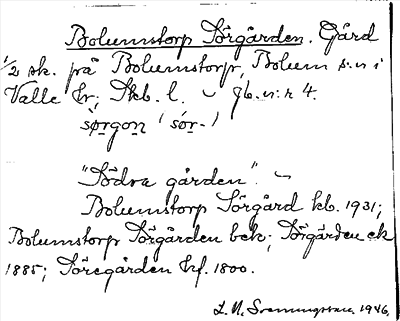 Bolumstorp Sörgården. Gård
1/2 sk. på Bolumstorp, Bolum s:n i
Valle hr; Skb. l. – Jb. n:r 4.
sørgon (sør-)
"Södra gården". –
Bolumstorp Sörgård kb. 1931;
Bolumstorp Sörgården bek; Sörgården ek
1885; Söregården hf. 1800.
1946.